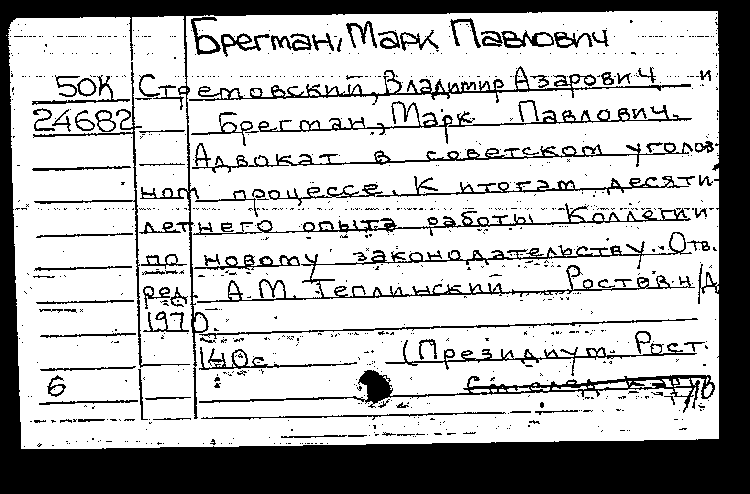 Брегман, Марк Павлович
50К Стремовский, Владимир Азарович и
24682 Брегман, Марк Павлович.
Адвокат в советском уголов-
ном процессе. К итогам десяти-
летнего опыта работы Коллегии
по новому законодательству. Отв.
ред. А.М. Теплинский. Ростов н/Д
1970.
140с. (Президиум Рост.
6 См. след. карт